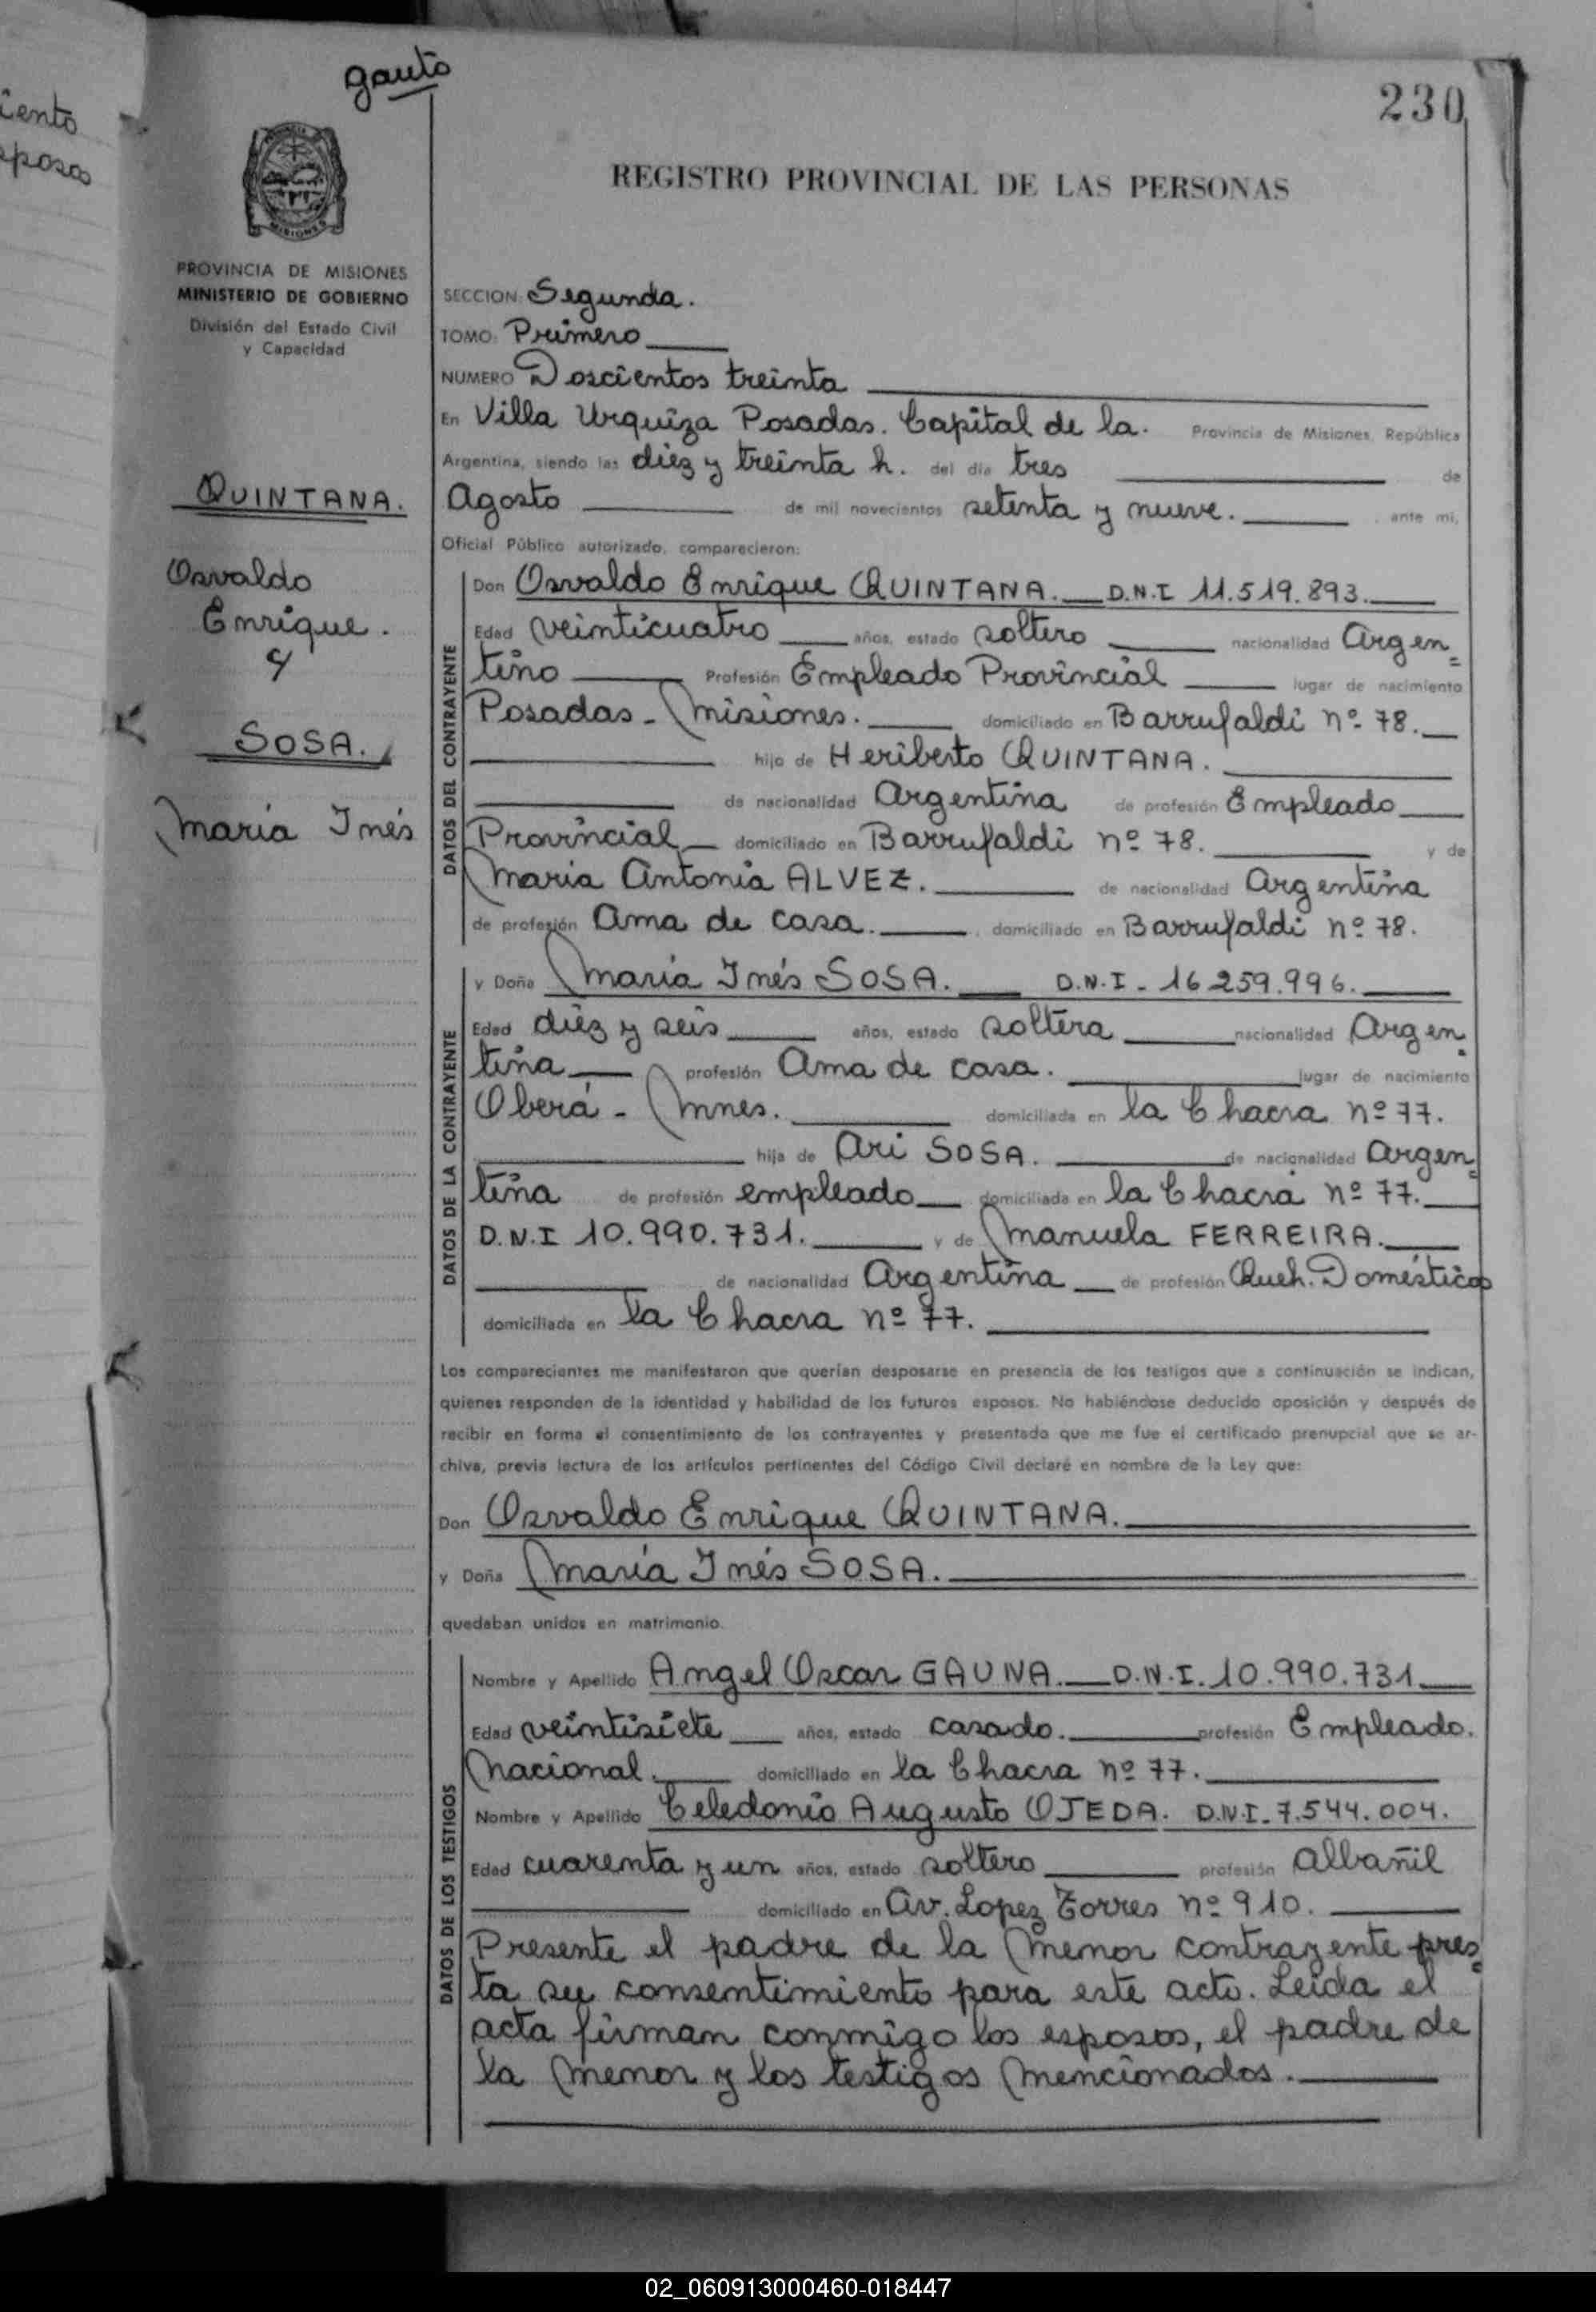 iento
sposos
gauto
230
REGISTRO PROVINCIAL DE LAS PERSONAS
MISIONES
PROVINCIA DE MISIONES
MINISTERIO DE GOBIERNO
División del Estado Civil
y Capacidad
SECCION: Segunda.
TOMO: Primero
NUMERO Doscientos treinta
En Villa Urquiza Posadas. Capital de la. Provincia de Misiones, República
Argentina, siendo las diez y treinta h. del día tres de
Agosto de mil novecientos setenta y nueve. , ante mi,
Oficial Público autorizado, comparecieron:
QUINTANA.
Osvaldo
Enrique.
y
SOSA.
María Inés
DATOS DEL CONTRAYENTE
Don Osvaldo Enrique QUINTANA. D.N.I 11.519.893.
Edad veinticuatro años, estado soltero nacionalidad Argen=
tino Profesión Empleado Provincial lugar de nacimiento
Posadas - Misiones. domiciliado en Barrufaldi nº 78.
hijo de Heriberto QUINTANA.
de nacionalidad Argentina de profesión Empleado
Provincial domiciliado en Barrufaldi nº 78. y de
Maria Antonia ALVEZ. de nacionalidad Argentina
de profesión Ama de casa. domiciliado en Barrufaldi nº 78.
DATOS DE LA CONTRAYENTE
y Doña María Inés SOSA. D.N.I - 16.259.996.
Edad diez y seis años, estado soltera nacionalidad Argen=
tina profesión Ama de casa. lugar de nacimiento
Oberá - Mnes. domiciliada en la Chacra nº 77.
hija de Ari SOSA. de nacionalidad Argen=
tina de profesión empleado domiciliada en la Chacra nº 77.
D.N.I 10.990.731. y de Manuela FERREIRA.
de nacionalidad Argentina de profesión Queh. Domésticos
domiciliada en la Chacra nº 77.
Los comparecientes me manifestaron que querían desposarse en presencia de los testigos que a continuación se indican,
quienes responden de la identidad y habilidad de los futuros esposos. No habiéndose deducido oposición y después de
recibir en forma el consentimiento de los contrayentes y presentado que me fue el certificado prenupcial que se ar-
chiva, previa lectura de los artículos pertinentes del Código Civil declaré en nombre de la Ley que:
Don Osvaldo Enrique QUINTANA.
y Doña María Inés SOSA.
quedaban unidos en matrimonio.
DATOS DE LOS TESTIGOS
Nombre y Apellido Angel Oscar GAUNA. D.N.I. 10.990.731
Edad veintisiete años, estado casado. profesión Empleado.
Nacional. domiciliado en la Chacra nº 77.
Nombre y Apellido Celedonio Augusto OJEDA. D.N.I. 7.544.004.
Edad cuarenta y un años, estado soltero profesión Albañil
domiciliado en Av. Lopez Torres nº 910.
Presente el padre de la menor contrayente pres=
ta su consentimiento para este acto. Leída el
acta firman conmigo los esposos, el padre de
la menor y los testigos mencionados.
02_060913000460-018447